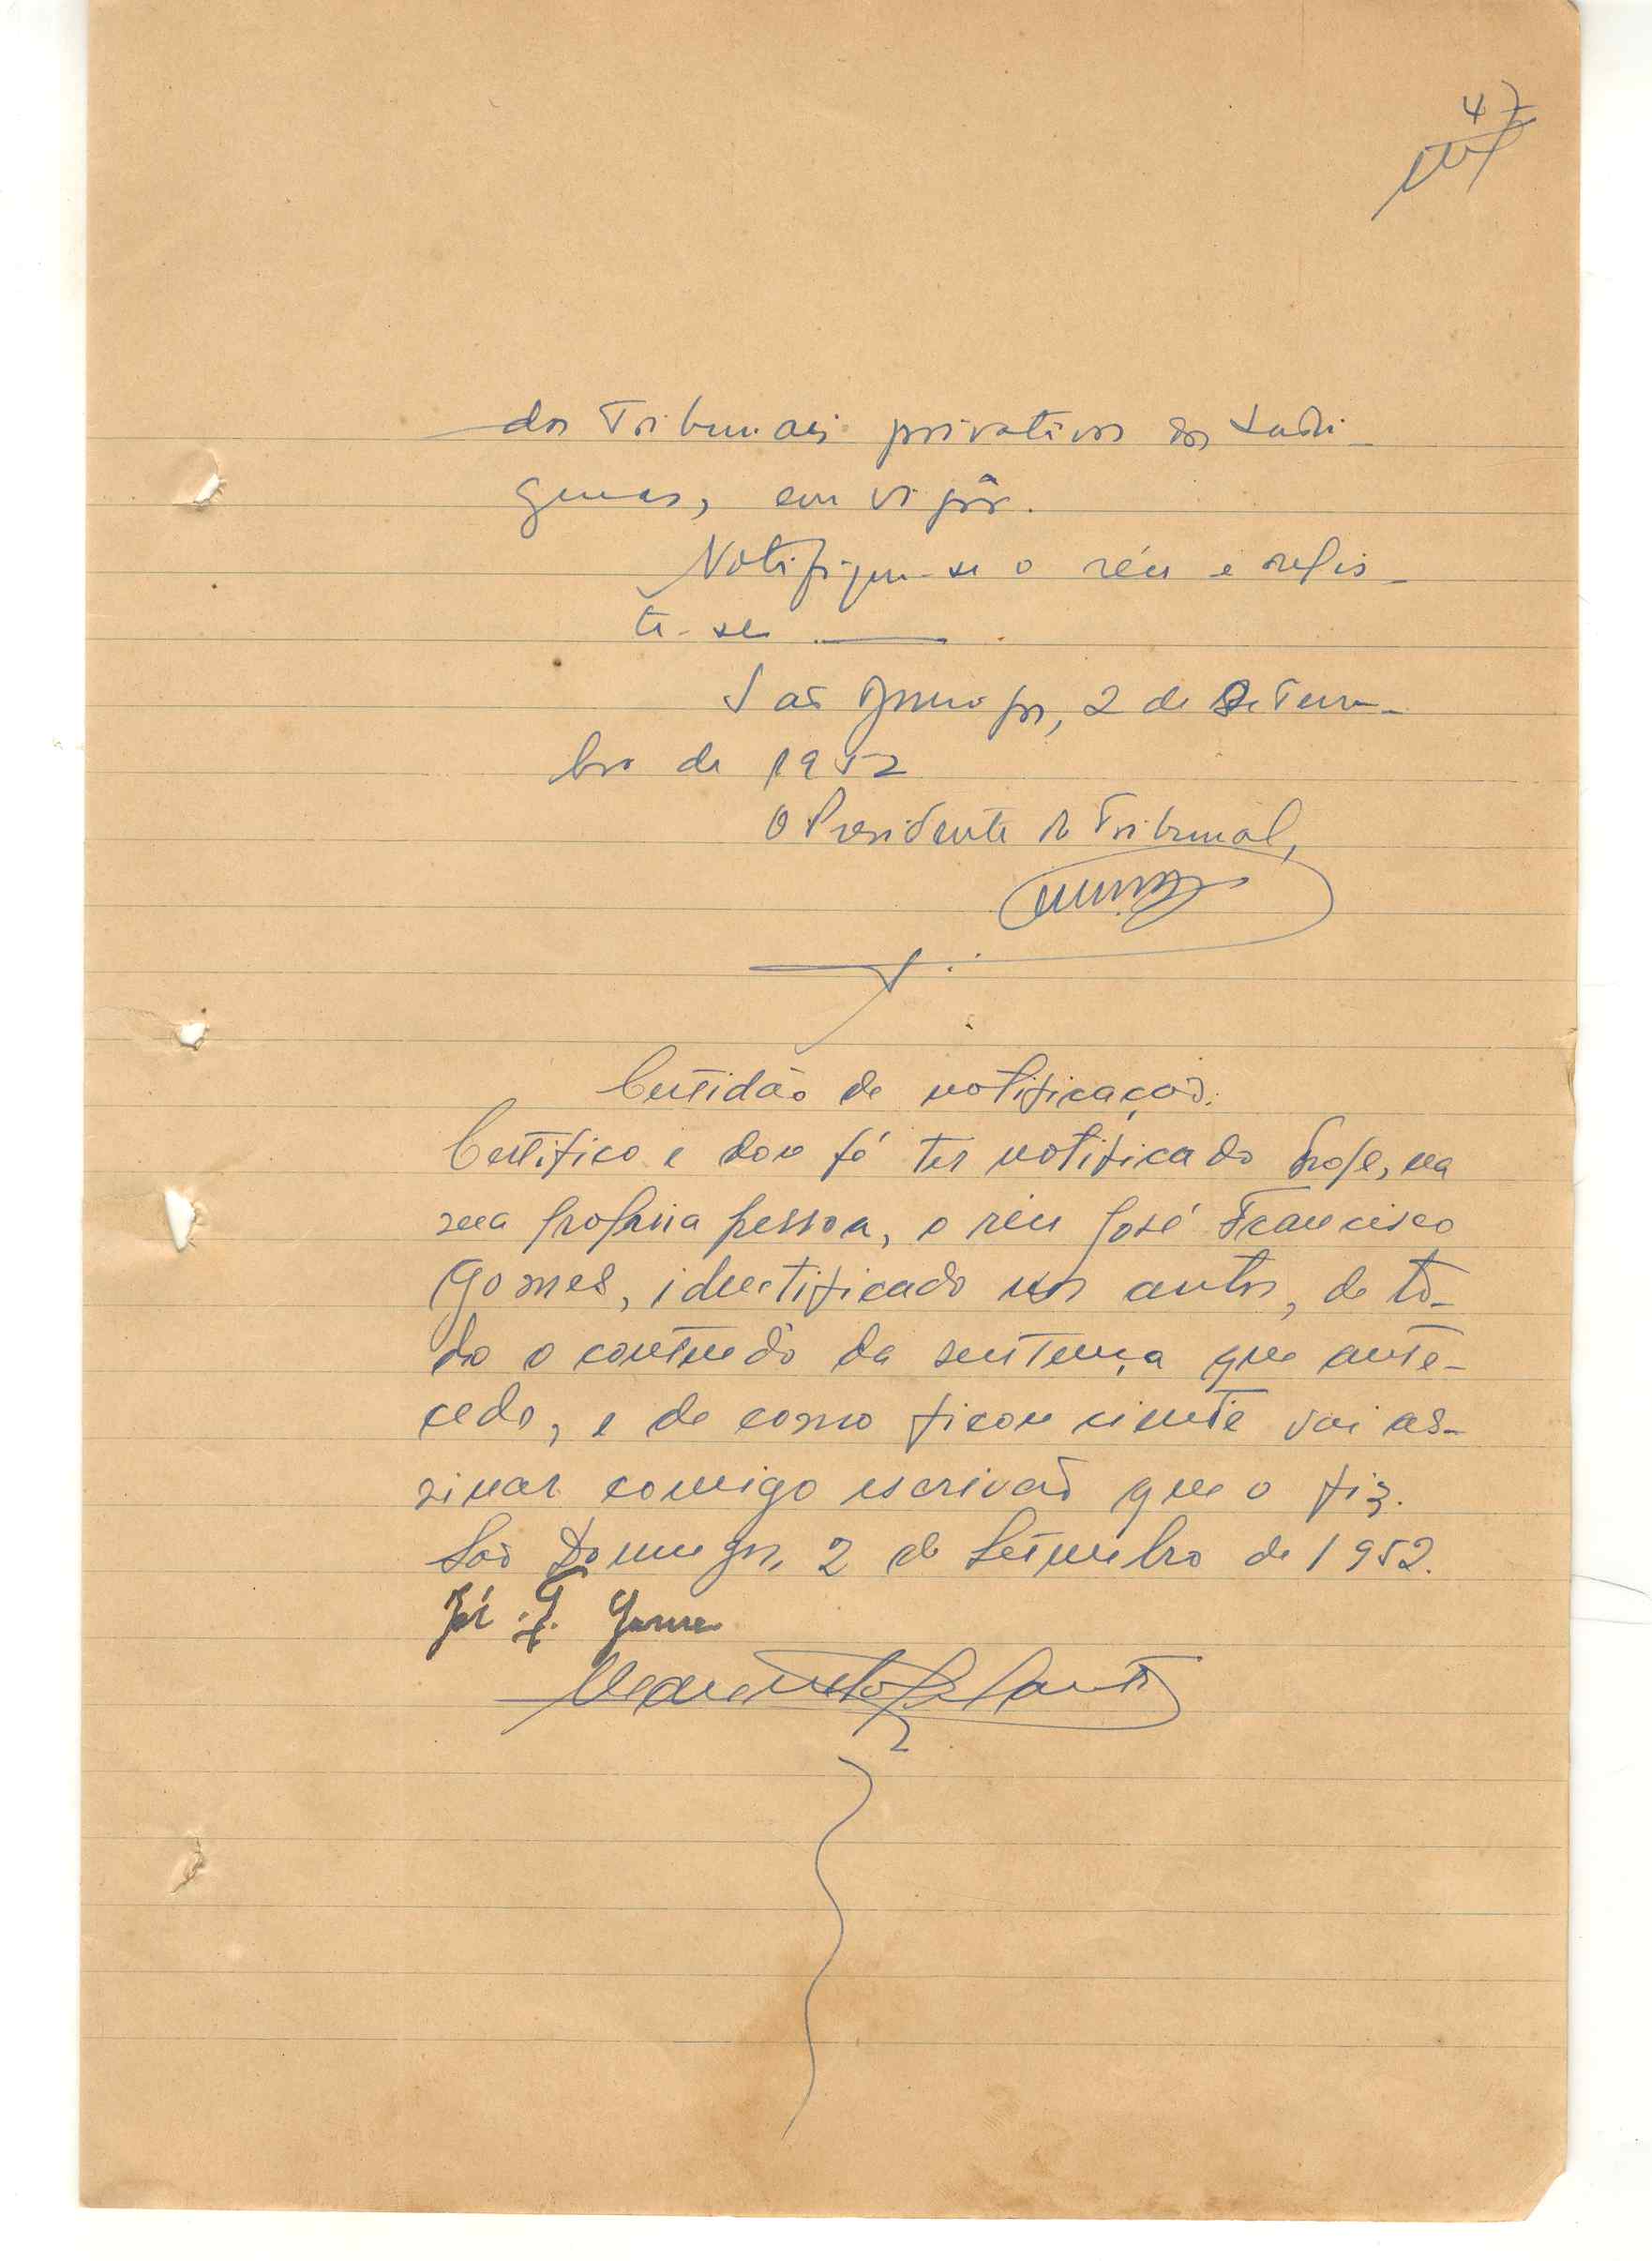 47
dos Tribunais privativos dos Indi-
genas, em vigôr.
Notifique-se o réu e regis-
te-se
São Domingos, 2 de Setem-
bro de 1952
O Presidente do Tribunal,
Certidão de notificação.
Certifico e dou fé ter notificado hoje, na
sua própria pessoa, o réu José Francisco
Gomes, identificado nos autos, de to-
do o conteúdo da sentença que ante-
cede, e de como ficou ciente vai as-
sinar comigo escrivão que o fiz.
São Domingos, 2 de Setembro de 1952.
José F. Gomes